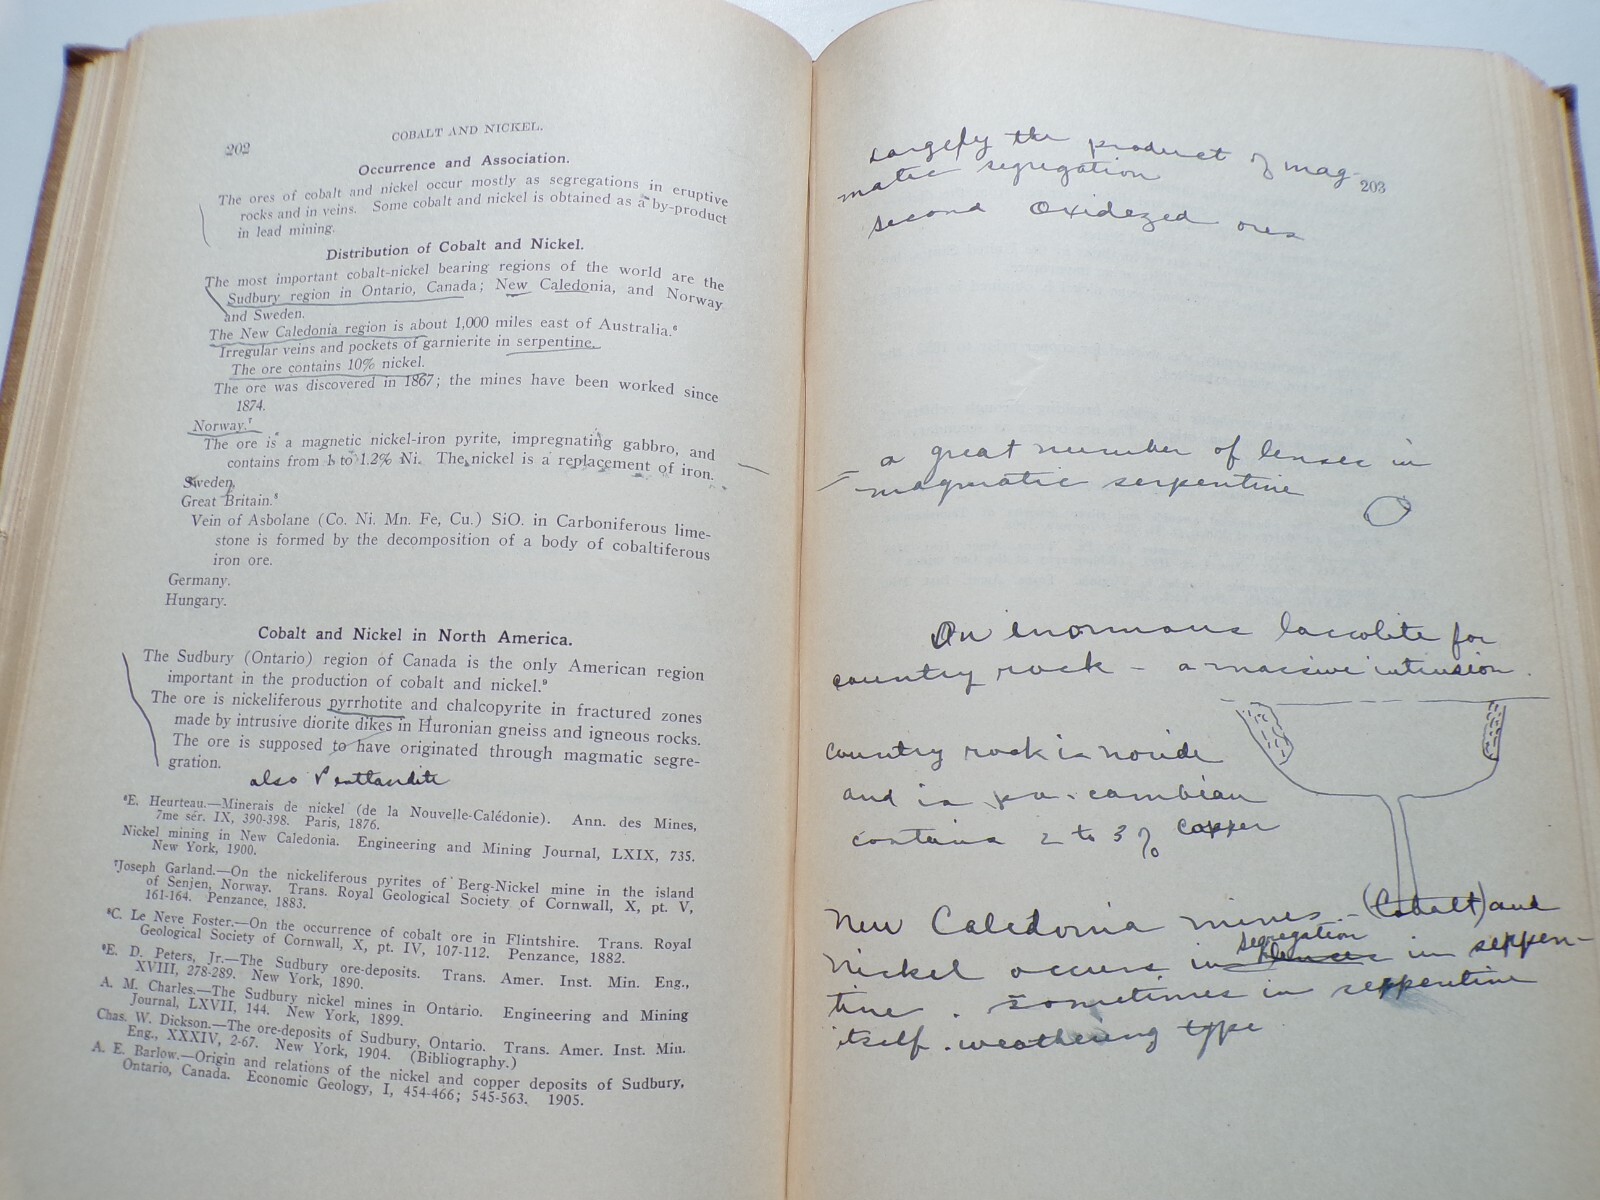 202
COBALT AND NICKEL.
Occurrence and Association.
The ores of cobalt and nickel occur mostly as segregations in eruptive
rocks and in veins. Some cobalt and nickel is obtained as a by-product
in lead mining.
Distribution of Cobalt and Nickel.
The most important cobalt-nickel bearing regions of the world are the
Sudbury region in Ontario, Canada; New Caledonia, and Norway
and Sweden.
The New Caledonia region is about 1,000 miles east of Australia.⁶
Irregular veins and pockets of garnierite in serpentine.
The ore contains 10% nickel.
The ore was discovered in 1867; the mines have been worked since
1874.
Norway.⁷
The ore is a magnetic nickel-iron pyrite, impregnating gabbro, and
contains from 1 to 1.2% Ni. The nickel is a replacement of iron.
Sweden.
Great Britain.⁸
Vein of Asbolane (Co. Ni. Mn. Fe, Cu.) SiO. in Carboniferous lime-
stone is formed by the decomposition of a body of cobaltiferous
iron ore.
Germany.
Hungary.
Cobalt and Nickel in North America.
The Sudbury (Ontario) region of Canada is the only American region
important in the production of cobalt and nickel.⁹
The ore is nickeliferous pyrrhotite and chalcopyrite in fractured zones
made by intrusive diorite dikes in Huronian gneiss and igneous rocks.
The ore is supposed to have originated through magmatic segre-
gration.
also Penttandite
⁶E. Heurteau.—Minerais de nickel (de la Nouvelle-Calédonie). Ann. des Mines,
7me sér. IX, 390-398. Paris, 1876.
Nickel mining in New Caledonia. Engineering and Mining Journal, LXIX, 735.
New York, 1900.
⁷Joseph Garland.—On the nickeliferous pyrites of Berg-Nickel mine in the island
of Senjen, Norway. Trans. Royal Geological Society of Cornwall, X, pt. V,
161-164. Penzance, 1883.
⁸C. Le Neve Foster.—On the occurrence of cobalt ore in Flintshire. Trans. Royal
Geological Society of Cornwall, X, pt. IV, 107-112. Penzance, 1882.
⁹E. D. Peters, Jr.—The Sudbury ore-deposits. Trans. Amer. Inst. Min. Eng.,
XVIII, 278-289. New York, 1890.
A. M. Charles.—The Sudbury nickel mines in Ontario. Engineering and Mining
Journal, LXVII, 144. New York, 1899.
Chas. W. Dickson.—The ore-deposits of Sudbury, Ontario. Trans. Amer. Inst. Min.
Eng., XXXIV, 2-67. New York, 1904. (Bibliography.)
A. E. Barlow.—Origin and relations of the nickel and copper deposits of Sudbury,
Ontario, Canada. Economic Geology, I, 454-466; 545-563. 1905.
Largely the product of mag-
matic segregation
203
second oxidezed ores
a great number of lenses in
magmatic serpentine
An enormous laccolite for
country rock - a massive intrusion.
country rock is noride
and is pre-cambian
contains 2 to 3% copper
New Caledonia mines - (Cobalt) and
segregation
nickel occurs in lenses in serpen-
tine. sometimes in serpentine
itself. weathering type